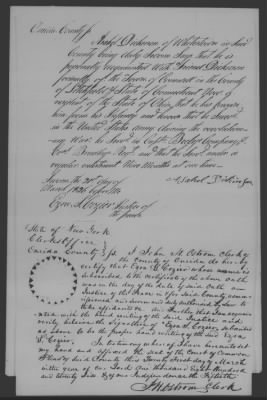 Oneida County ss
Asahel Dickinson of Whitestown in said
County being duly sworn says that he is
personally acquainted with Samuel Dickinson
formerly of the Town of in the County
of Litchfield & State of Connecticut now a
resident of the State of Ohio, that he has known
him from his Infancy and knows that he served
in the United States Army during the revolution-
ary War: he served in Capt. Company
Col. Regt and that he served under a
regular enlistment Nine Months at one time
Sworn the 21st day of
March 1826 before Me
Asahel Dickinson
Ezra S. Cozier Justice of
the peace
State of New York
Clerks Office
Oneida County ss I John H Ostrom Clerk of
the County of Oneida do hereby
certify that Ezra S. Cozier whose name is
subscribed to the certificate of the above Oath
was on the day of the date of said Oath an
Justice of the Peace in & for said County, com-
missioned and sworn and duly authorized by Law to
take affidavits and further that I am acquain-
ted with the hand writing of the said and
verily believe the signature of "Ezra S. Cozier" subscribed
as above to be the proper hand writing of the said Ezra
S. Cozier. In testimony whereof I have hereunto set
my hand and affixed the seal of the Court of Common
Pleas of said County this day of March
in the year of our Lord One thousand Eight Hundred
and twenty Six & of our Independence the Fiftieth
J H Ostrom Clerk